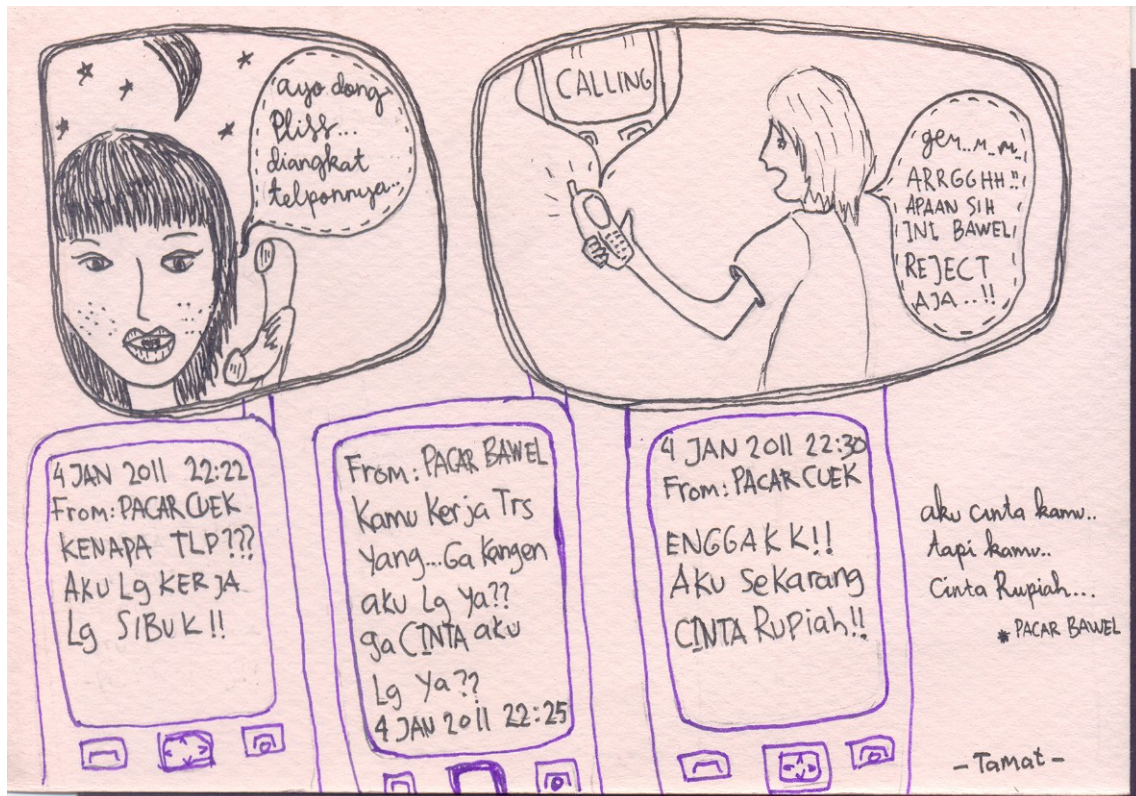 ayo dong
Pliss...
diangkat
telponnya...
CALLING
ARRGGHH..!!
APAAN SIH
INI BAWEL
REJECT
AJA..!!
4 JAN 2011 22:22
From: PACAR CUEK
KENAPA TLP???
AKU Lg KERJA
Lg SIBUK!!
From: PACAR BAWEL
Kamu Kerja Trs
Yang...Ga Kangen
aku Lg Ya??
ga CINTA aku
Lg Ya??
4 JAN 2011 22:25
4 JAN 2011 22:30
From: PACAR CUEK
ENGGAKK!!
AKU SeKarang
CINTA RuPiah!!
aku cinta kamu..
tapi kamu..
Cinta Rupiah...
* PACAR BAWEL
- Tamat -